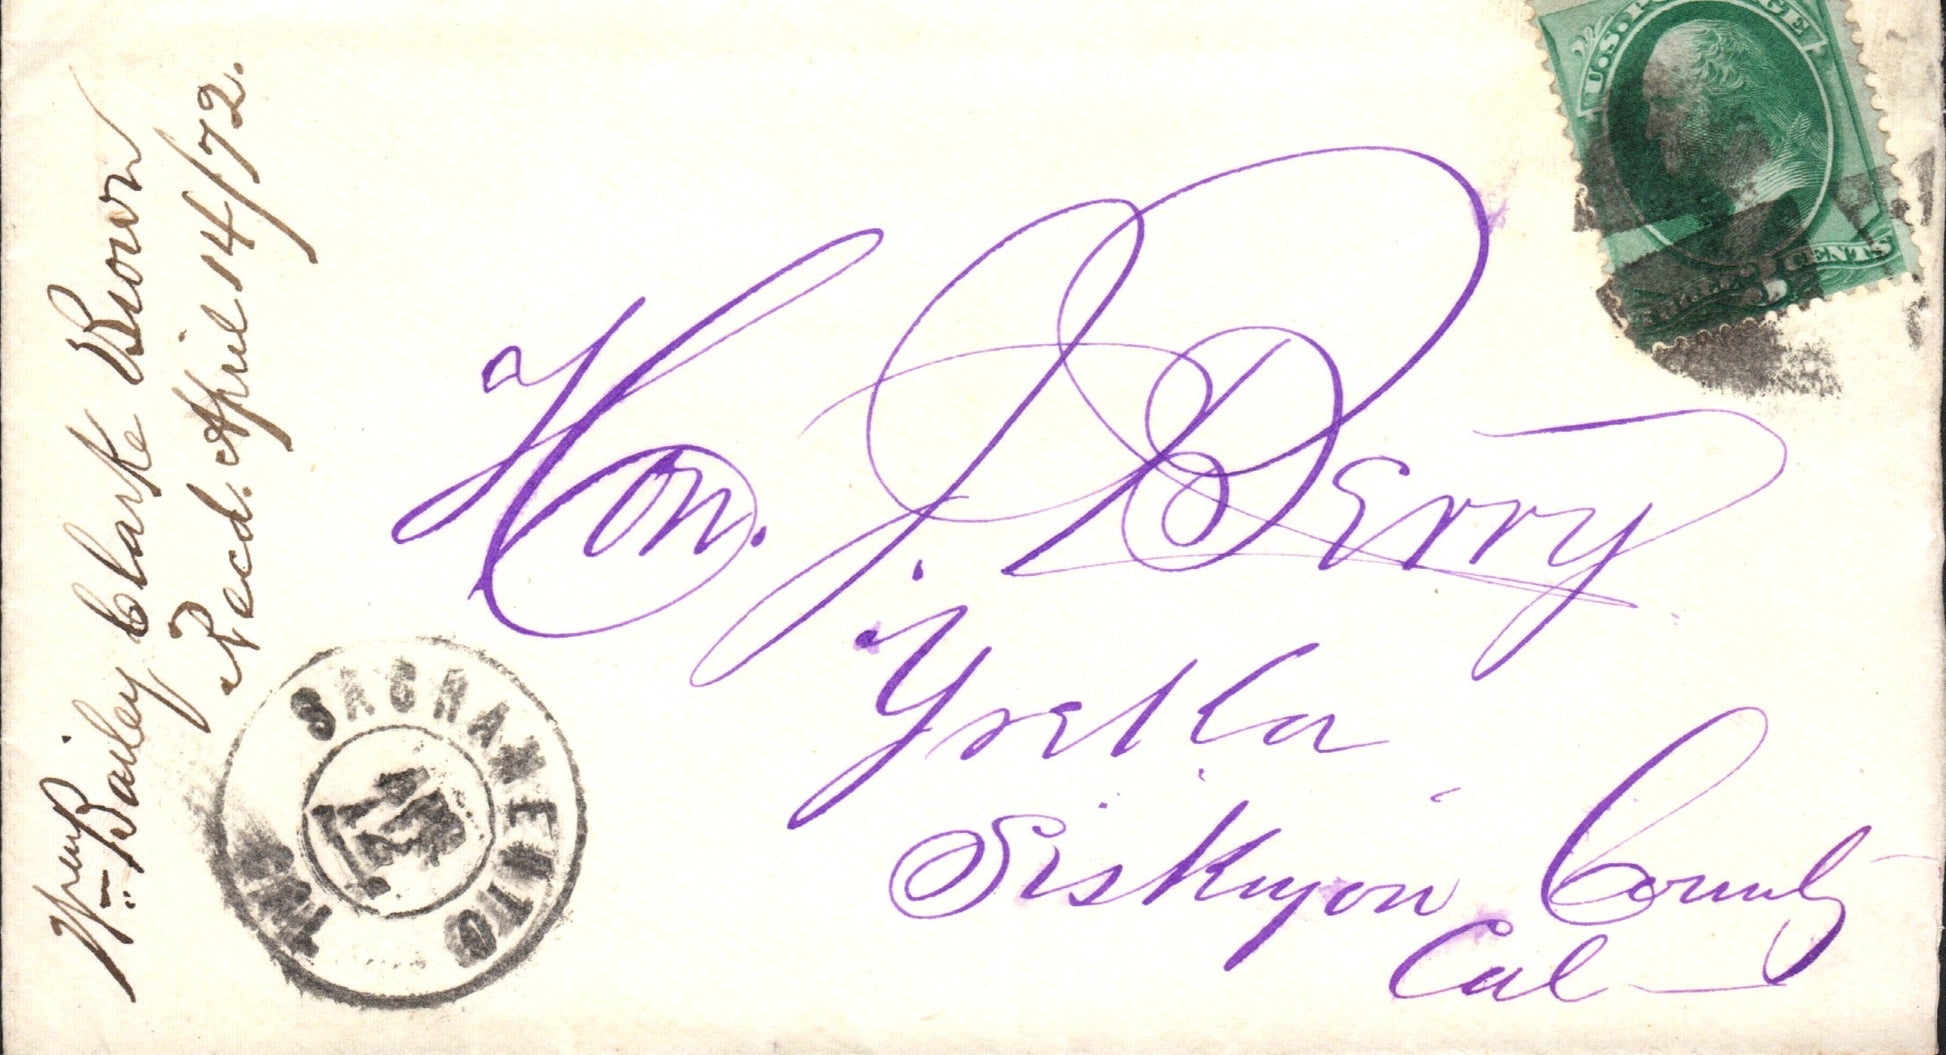 Wm Bailey Clarke Brown
Recd. April 14/72.
U.S. POSTAGE
3 CENTS
Hon. J. Berry
Yreka
Siskiyou County
Cal
SACRAMENTO